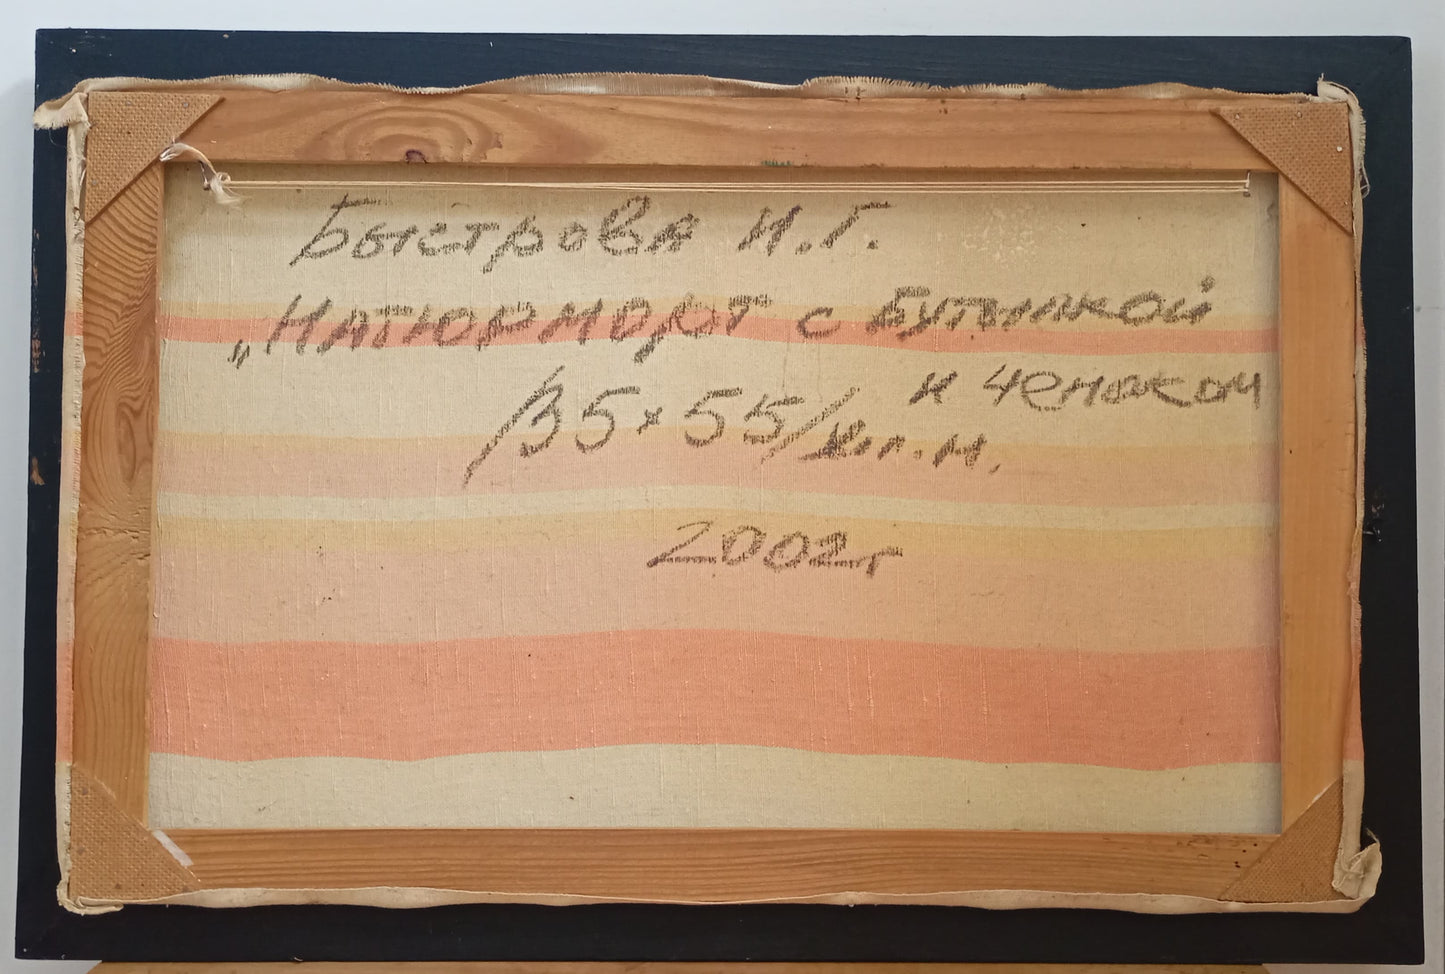 Быстрова И.Г.
„Натюрморт с бутылкой
и чесноком
/35x55/ хол.м.
2002г